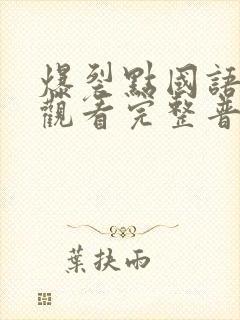 爆裂點國語
觀看完整普
葉扶雨